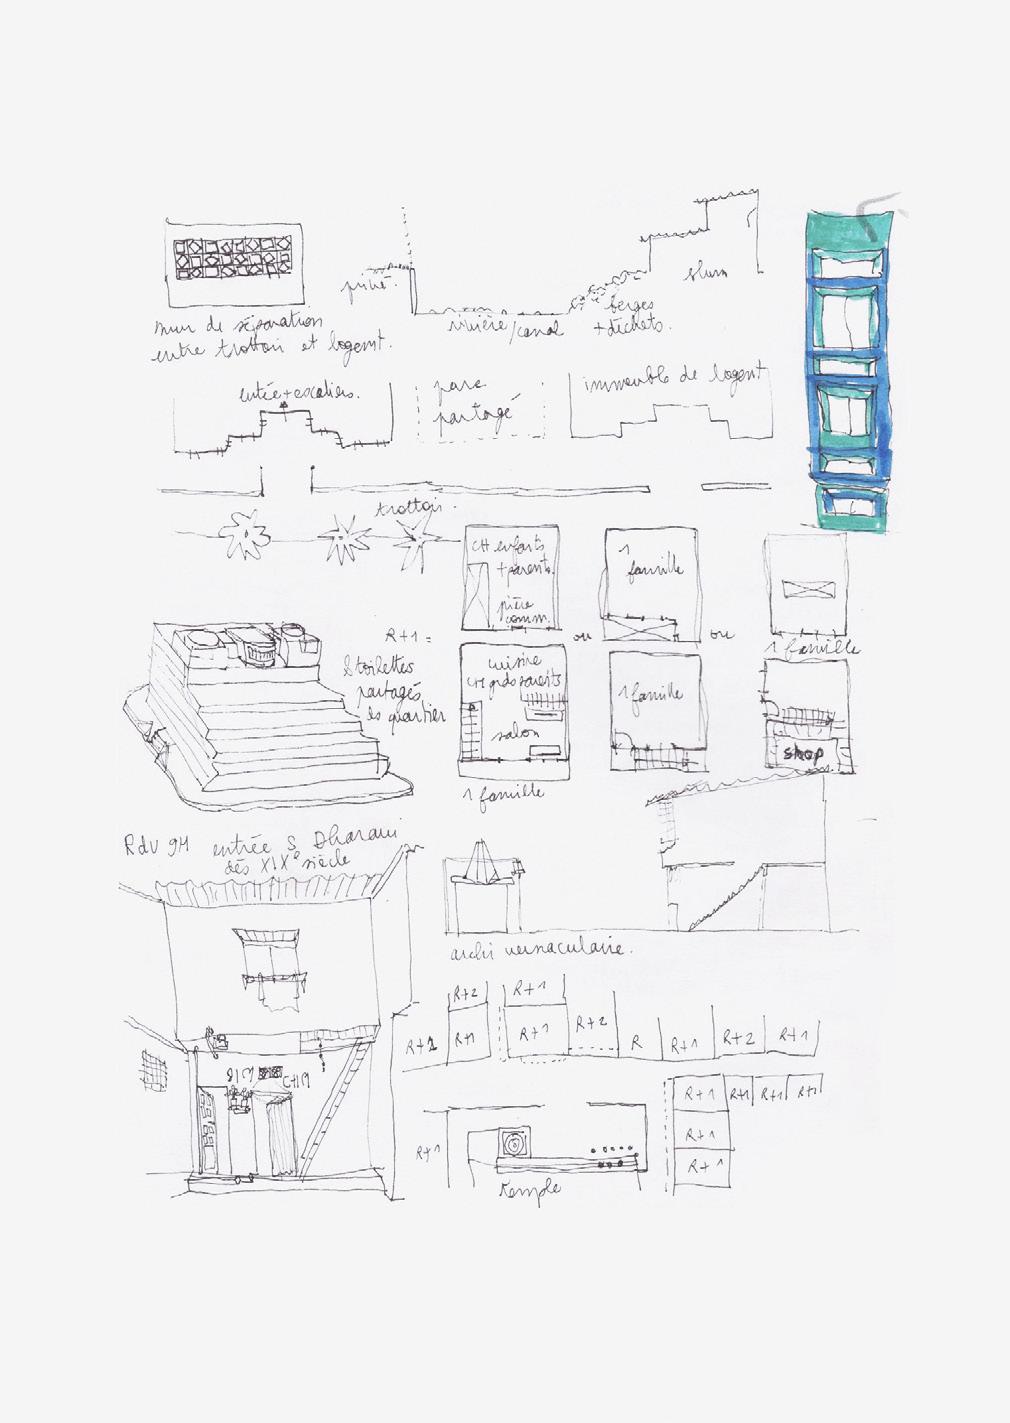 mur de séparation
entre trottoir et logemt.
privé.
rivière/canal
berges
+déchets.
slum
entrée+escaliers.
parc
partagé
immeuble de logemt
trottoir.
R+1 =
CH enfants
+ parents.
pièce
comm.
cuisine
CH grds parents
salon
1 famille
ou
1
famille
1 famille
ou
1 famille
shop
8 toilettes
partagés
ds quartier
RdV 9H entrée S Dharavi
dès XIXe siècle
archi vernaculaire.
R+1
R+2
R+1
R+1
R+1
R+2
R
R+1
R+2
R+1
R+1
Temple
R+1
R+1
R+1
R+1
R+1
R+1